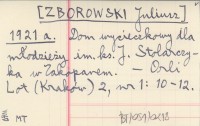 [ZBOROWSKI Juliusz]
1921 a. Dom wycieczkowy dla
młodzieży im. ks. J. Stolarczy-
ka w Zakopanem. — Orli
Lot (Kraków) 2, nr 1: 10-12.
MT